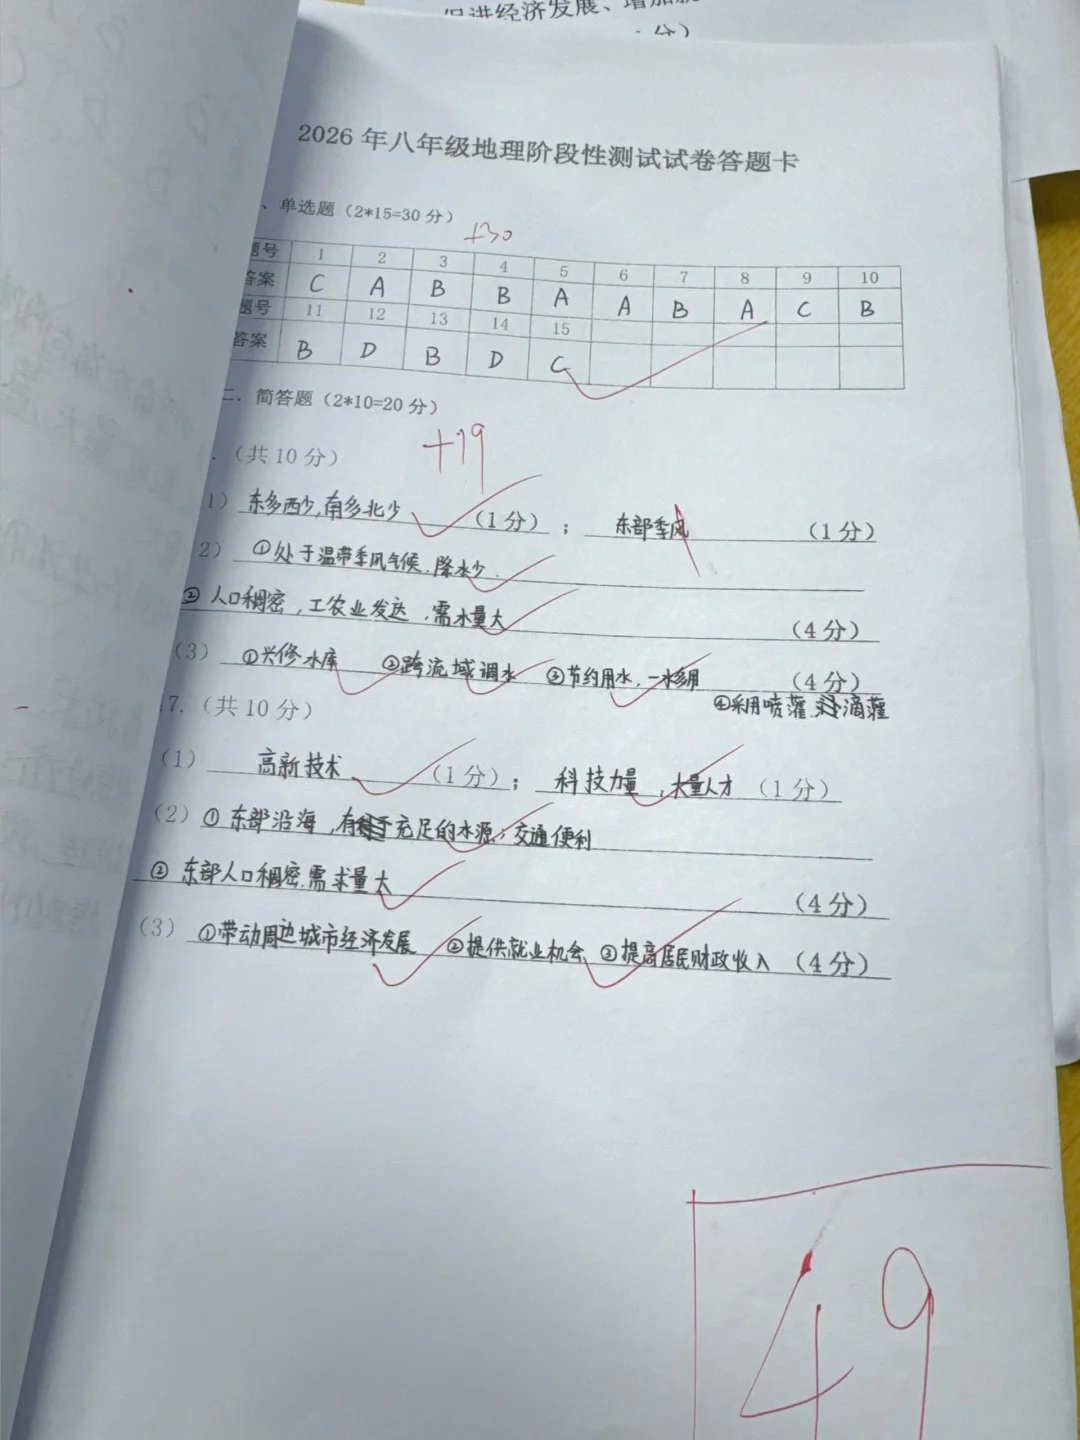 促进经济发展、增加就
分）
2026年八年级地理阶段性测试试卷答题卡
、单选题（2*15=30分）
+30
题号 1 2 3 4 5 6 7 8 9 10
答案 C A B B A A B A C B
题号 11 12 13 14 15
答案 B D B D C
二．简答题（2*10=20分）
+19
．（共10分）
1）东多西少，南多北少（1分）；东部季风（1分）
2）①处于温带季风气候，降水少．
②人口稠密，工农业发达，需水量大（4分）
（3）①兴修水库 ②跨流域调水 ③节约用水，一水多用（4分）
④采用喷灌、滴灌
17.（共10分）
（1）高新技术（1分）；科技力量，大量人才（1分）
（2）①东部沿海，有充足的水源；交通便利
②东部人口稠密，需求量大（4分）
（3）①带动周边城市经济发展 ②提供就业机会 ③提高居民财政收入（4分）
49